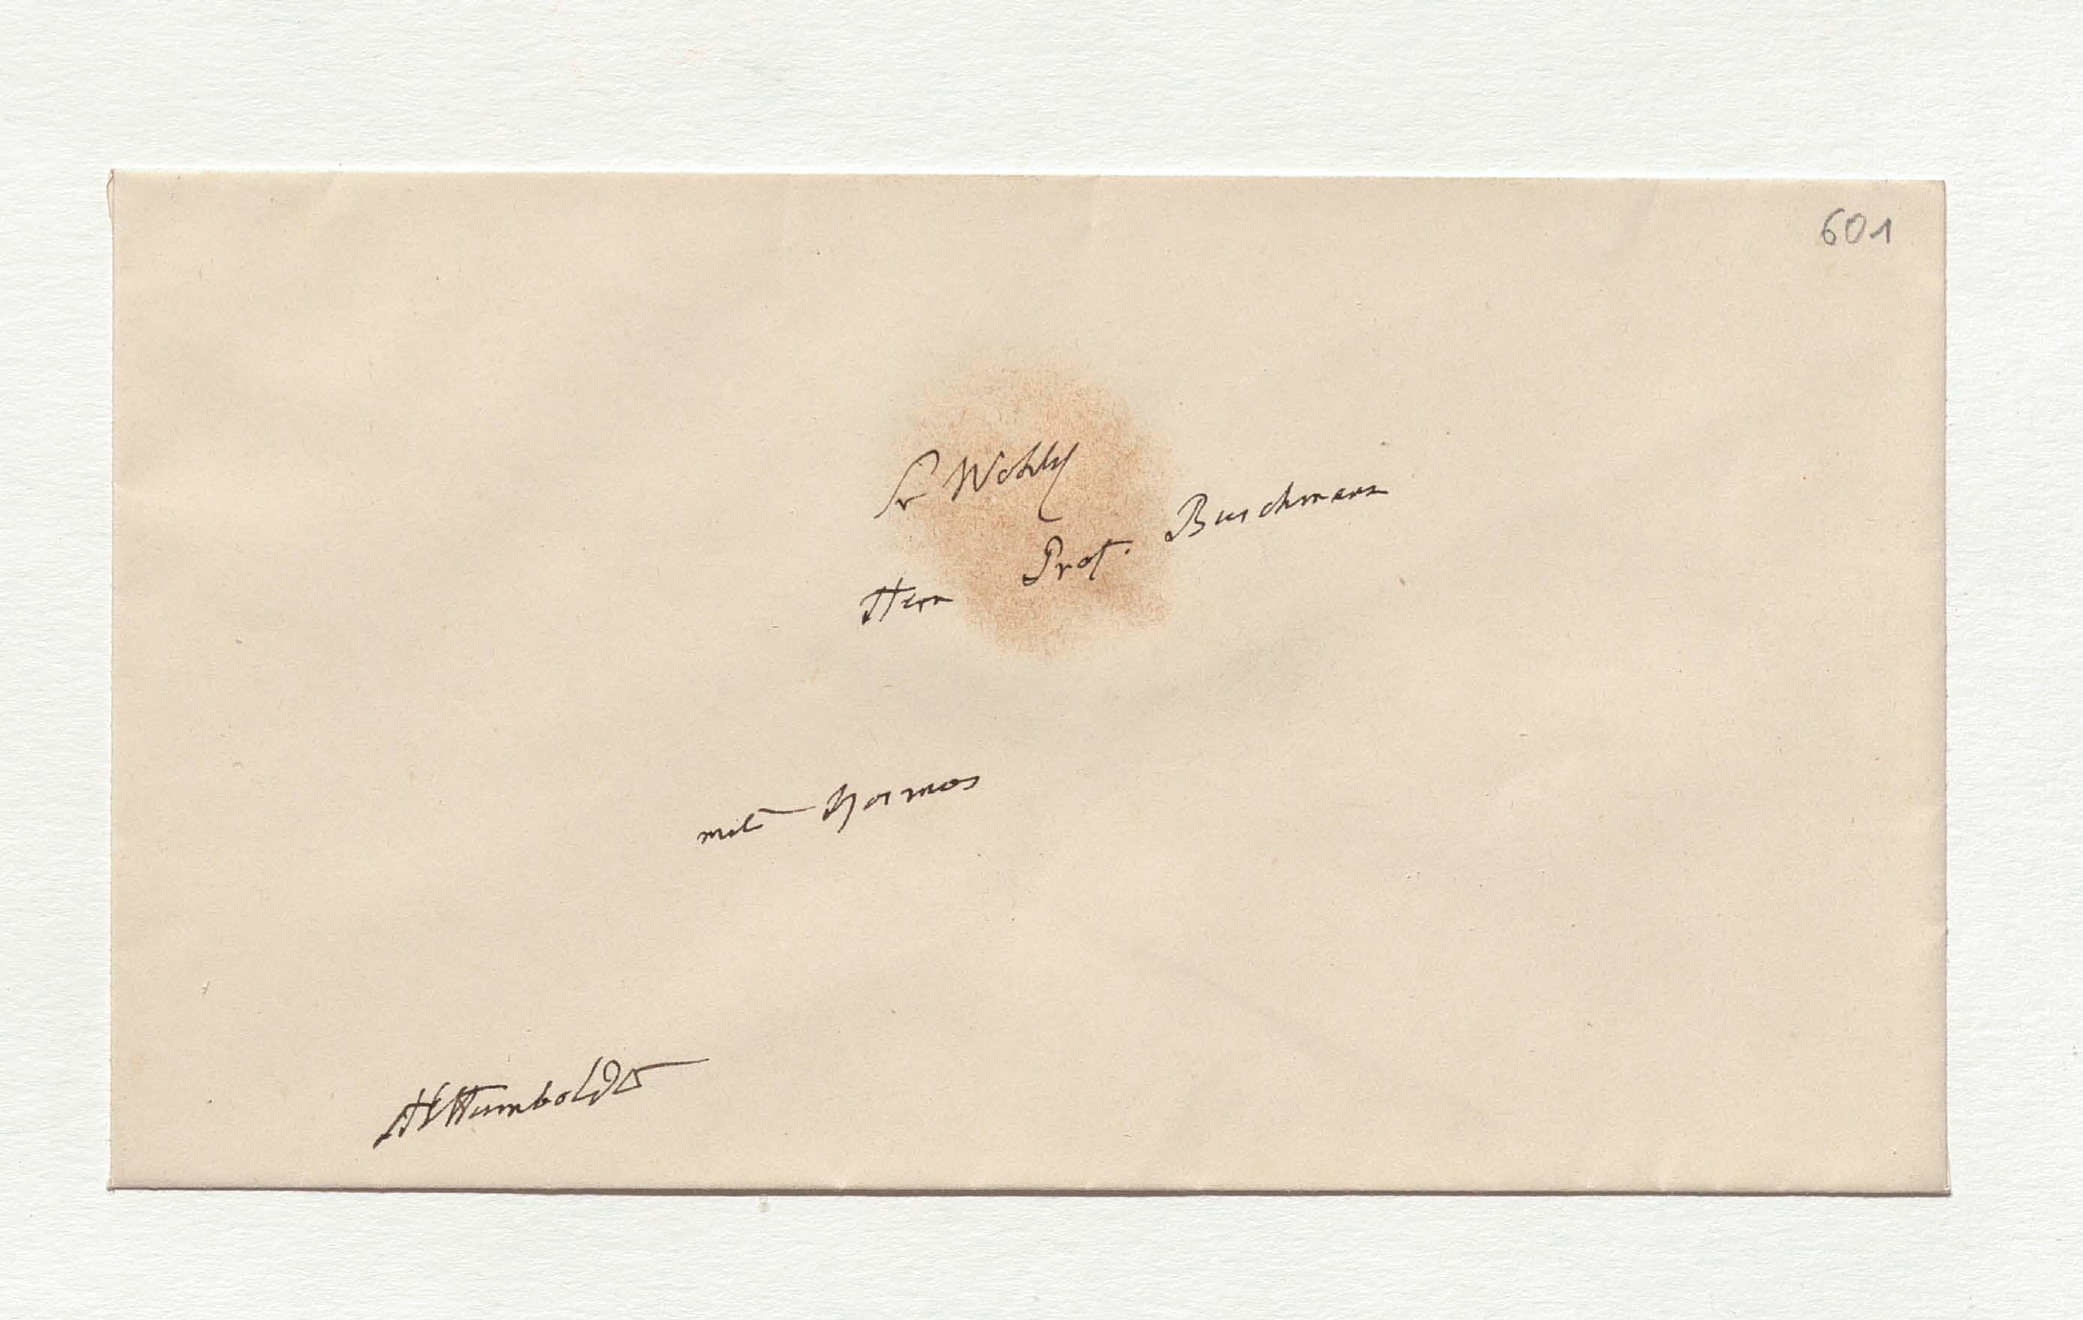 601
Sr Wohlg
Herrn Prof. Buschmann
mit Kosmos
AlHumboldt